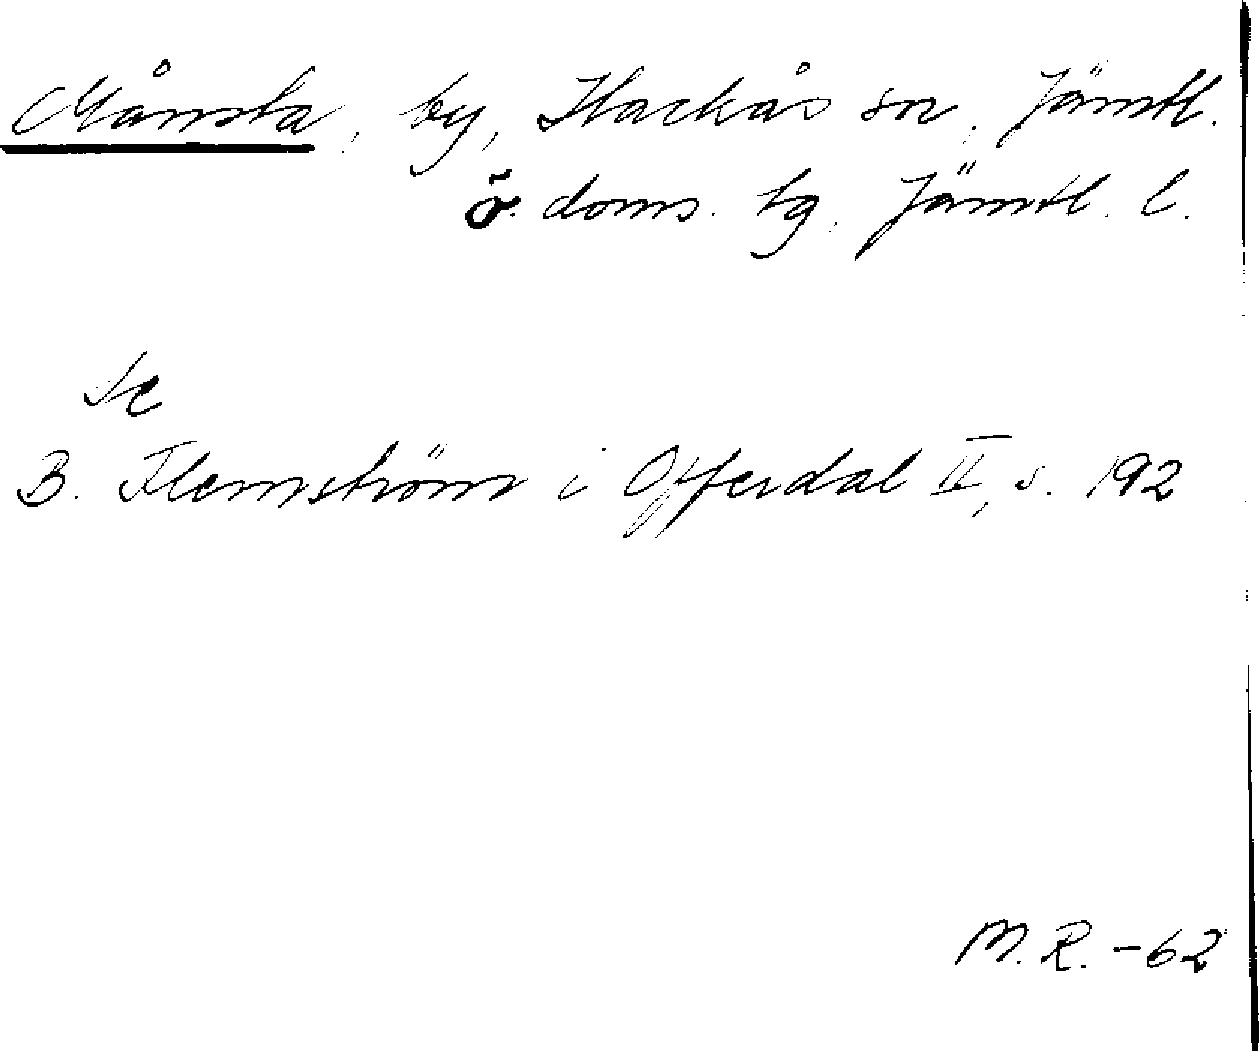 Månsta, by, Hackås sn, Jämtl.
ö. doms. tg, Jämtl. l.
se
B. Flemström i Offerdal II, s. 192
M.R. -62